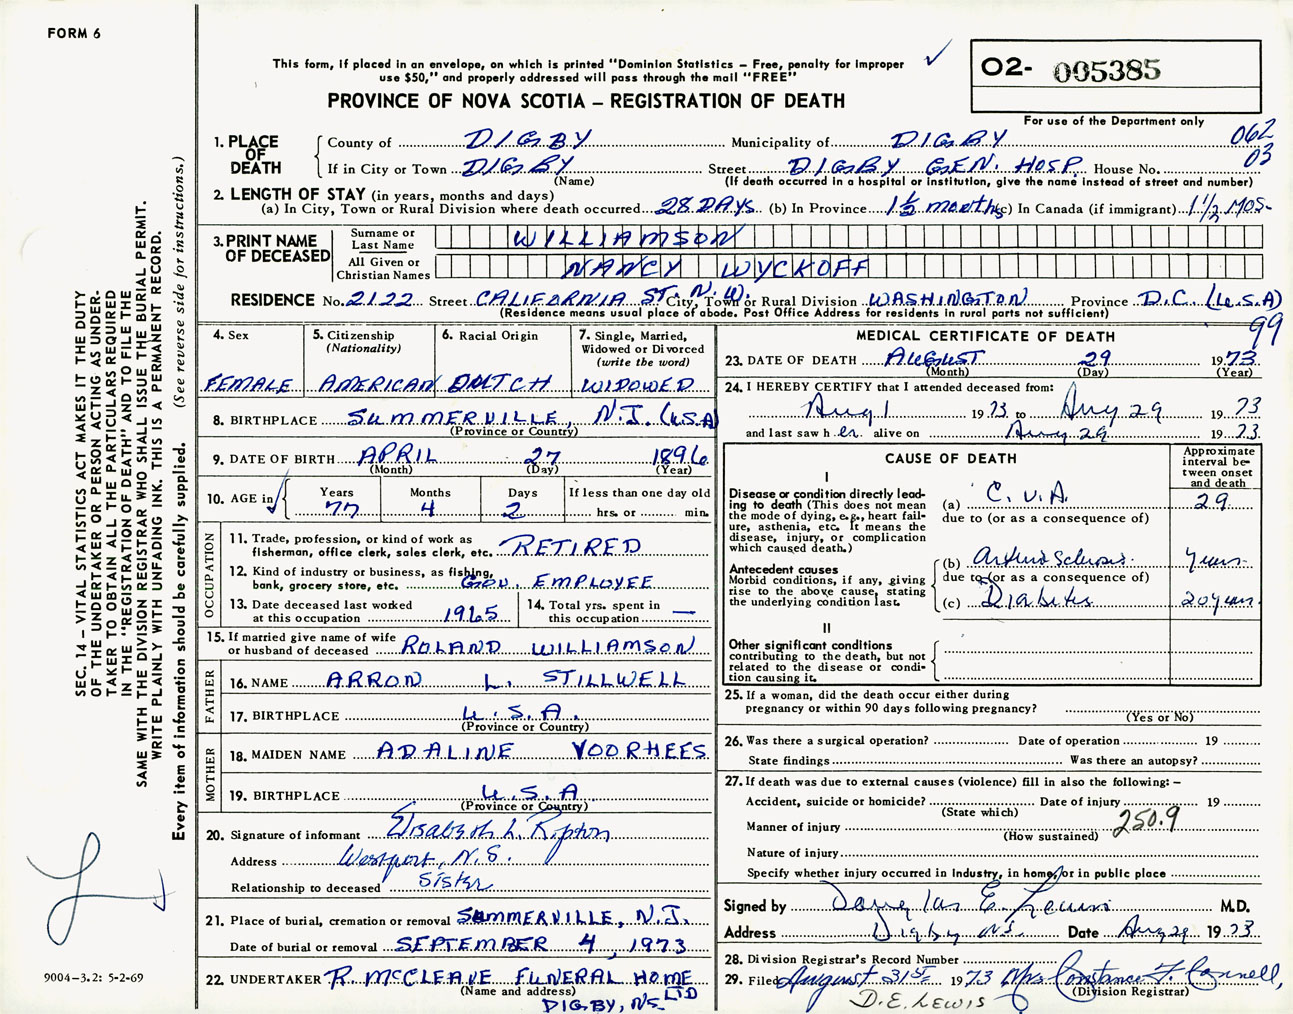 FORM 6
This form, if placed in an envelope, on which is printed "Dominion Statistics – Free, penalty for improper
use $50," and properly addressed will pass through the mail "FREE"
PROVINCE OF NOVA SCOTIA – REGISTRATION OF DEATH
O2- 005385
For use of the Department only
062
03
1. PLACE OF DEATH
County of DIGBY Municipality of DIGBY
If in City or Town DIGBY Street DIGBY GEN. HOSP. House No.
(Name) (If death occurred in a hospital or institution, give the name instead of street and number)
2. LENGTH OF STAY (in years, months and days)
(a) In City, Town or Rural Division where death occurred 28 DAYS (b) In Province 1½ months (c) In Canada (if immigrant) 1½ MOS-
3. PRINT NAME OF DECEASED
Surname or Last Name WILLIAMSON
All Given or Christian Names NANCY WYCKOFF
RESIDENCE No. 2122 Street CALIFORNIA ST. N.W. City, Town or Rural Division WASHINGTON Province D.C. (U.S.A)
(Residence means usual place of abode. Post Office Address for residents in rural parts not sufficient)
99
4. Sex
FEMALE
5. Citizenship
(Nationality)
AMERICAN
6. Racial Origin
DUTCH
7. Single, Married,
Widowed or Divorced
(write the word)
WIDOWED
8. BIRTHPLACE SUMMERVILLE, N.J. (U.S.A)
(Province or Country)
9. DATE OF BIRTH APRIL 27 1896
(Month) (Day) (Year)
10. AGE in
Years Months Days If less than one day old
77 4 2 hrs. or min.
OCCUPATION
11. Trade, profession, or kind of work as
fisherman, office clerk, sales clerk, etc. RETIRED
12. Kind of industry or business, as fishing,
bank, grocery store, etc. GOV. EMPLOYEE
13. Date deceased last worked
at this occupation 1965
14. Total yrs. spent in
this occupation —
15. If married give name of wife
or husband of deceased ROLAND WILLIAMSON
FATHER
16. NAME ARRON L. STILLWELL
17. BIRTHPLACE U.S.A.
(Province or Country)
MOTHER
18. MAIDEN NAME ADALINE VOORHEES
19. BIRTHPLACE U.S.A
(Province or Country)
20. Signature of informant Elisabeth L. Ripton
Address Westport, N.S.
Relationship to deceased Sister
21. Place of burial, cremation or removal SUMMERVILLE, N.J.
Date of burial or removal SEPTEMBER 4, 1973
22. UNDERTAKER R. MCCLEAVE FUNERAL HOME LTD
(Name and address)
DIGBY, NS
MEDICAL CERTIFICATE OF DEATH
23. DATE OF DEATH AUGUST 29 1973
(Month) (Day) (Year)
24. I HEREBY CERTIFY that I attended deceased from:
Aug 1 1973 to Aug 29 1973
and last saw her alive on Aug 29 1973
CAUSE OF DEATH
Approximate
interval be-
tween onset
and death
I
Disease or condition directly lead-
ing to death (This does not mean
the mode of dying, e.g., heart fail-
ure, asthenia, etc. It means the
disease, injury, or complication
which caused death.)
(a) C.V.A. 29
due to (or as a consequence of)
Antecedent causes
Morbid conditions, if any, giving
rise to the above cause, stating
the underlying condition last.
(b) Arteriosclerosis. Years
due to (or as a consequence of)
(c) Diabetes 20 years
II
Other significant conditions
contributing to the death, but not
related to the disease or condi-
tion causing it.
25. If a woman, did the death occur either during
pregnancy or within 90 days following pregnancy?
(Yes or No)
26. Was there a surgical operation? Date of operation 19
State findings Was there an autopsy?
27. If death was due to external causes (violence) fill in also the following: –
Accident, suicide or homicide? Date of injury 19
(State which)
Manner of injury 250.9
(How sustained)
Nature of injury
Specify whether injury occurred in Industry, in home, or in public place
Signed by Douglas E. Lewis M.D.
Address Digby N.S. Date Aug 29 1973
28. Division Registrar's Record Number
29. Filed August 31st 1973 Mrs Constance F. Connell,
(Division Registrar)
D.E. LEWIS
SEC. 14 – VITAL STATISTICS ACT MAKES IT THE DUTY
OF THE UNDERTAKER OR PERSON ACTING AS UNDER-
TAKER TO OBTAIN ALL THE PARTICULARS REQUIRED
IN THE "REGISTRATION OF DEATH" AND TO FILE THE
SAME WITH THE DIVISION REGISTRAR WHO SHALL ISSUE THE BURIAL PERMIT.
WRITE PLAINLY WITH UNFADING INK. THIS IS A PERMANENT RECORD.
Every item of information should be carefully supplied. (See reverse side for instructions.)
9004-3.2: 5-2-69